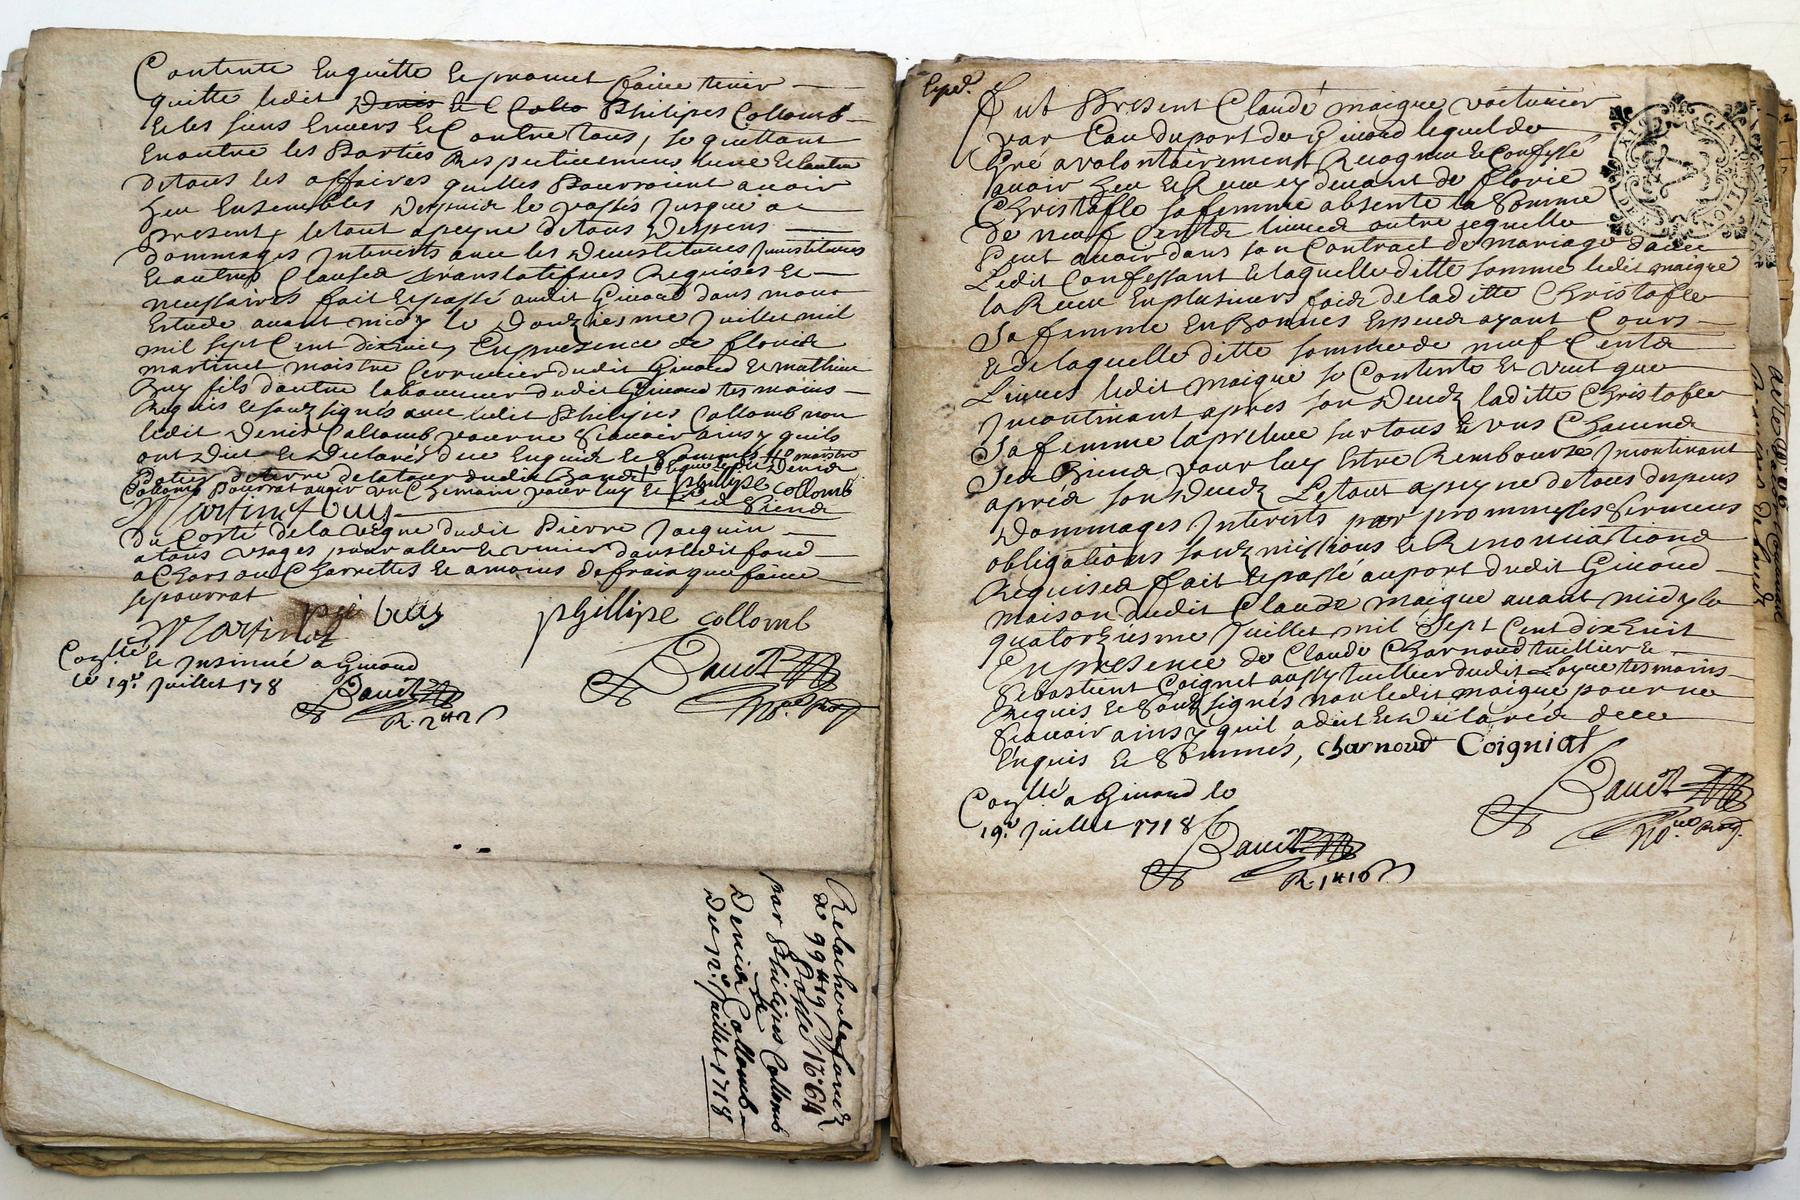 Contente Enquitte Et promet faire tenir
quitte ledit Denis Et C Collo Philipes Collomb
Et les siens Envers Et Contre tous, se quittant
Enoutre les Parties Respectivement Lune Et lautre
detous les affaires quelles Pourroient avoir
Heu Ensembles Despuis le passés Jusque a
present, letout apeyne detous Despens
Dommages Interests avec les Devestitures Investitures
Et autres Clauses translatifves Requises Et
necessaires fait Et passé audit Girond dans mon
Estude avant midy le Douziesme Juillet mil
mil sept Cent dixhuit, Enpresence de
martinet maistre serrurier dudit Girond Et mathieu
Buy fils dautre laboureur dudit Girond tesmoins
Requis Et souz signés avec ledit Philipes Collomb non
ledit Denis Collomb pour ne scavoir ainsy quils
ont Dict Et Declarés de ce Enquis Et sommés
Collomb pourrat avoir un Chemain pour luy Et
phillipe collomb
Martinet buy
Du Costé de la vigne dudit Pierre Jacquin
atous usages pour aller Et venir dans ledit fond
a Chars ou Charrettes Et amoins de frais que faire
se pourrat
Martinet buy phillipe collomb
Conllé Et Insinué a Girond
le 19e. Juillet 1718
Baudt
R. 2# 2s
Baudt
Nore. Roy.
Relache de fondz
de 99# 19s
Passé 1664
par Philipes Collomb
a
Denis Collomb
Du 12e. Juillet 1718
Exped.
Fut Present Claude maigre voiturier
par Eau du port de Girond lequel de
Gré a volontairement Recognu Et Confessé
avoir Heu Et Receu cy devant de
Christofle sa femme absente la Somme
de neuf Centz livres outre cequelle
Peut avoir dans son Contract de mariage avec
Ledit Confessant Et laquelle ditte somme ledit maigre
la Receu Enplusieurs fois de laditte Christofle
Sa femme En Bonnes Especes ayant Cours
Et de laquelle ditte somme de neuf Centz
Livres ledit maigre se Contente Et veut que
Incontinant apres son Decedz laditte Christofle
Sa femme la preleve sur tous Et uns Chacuns
Ses Biens pour luy Estre Rembourse Incontinant
apres son Decedz Letout apeyne detous despens
Dommages Interests par prommesses serments
obligations souz missions Et Renonciations
Requises fait Et passé au port dudit Girond
maison dudit Claude maigre avant midy le
quatorziesme Juillet mil Sept Cent Dix huit
Enpresence de Claude Charnoud tuillier Et
Sebastient Coignet aussy tuillier dudit tesmoins
Requis Et souz signés non ledit maigre pour ne
scavoir ainsy quil a dict Et declaré de ce
Enquis Et Sommés, Charnoud Coigniat
Conllé a Girond le
19e. Juillet 1718
Baudt
R. 1# 10s
Baudt
Nore. Roy.
GEN DE LION